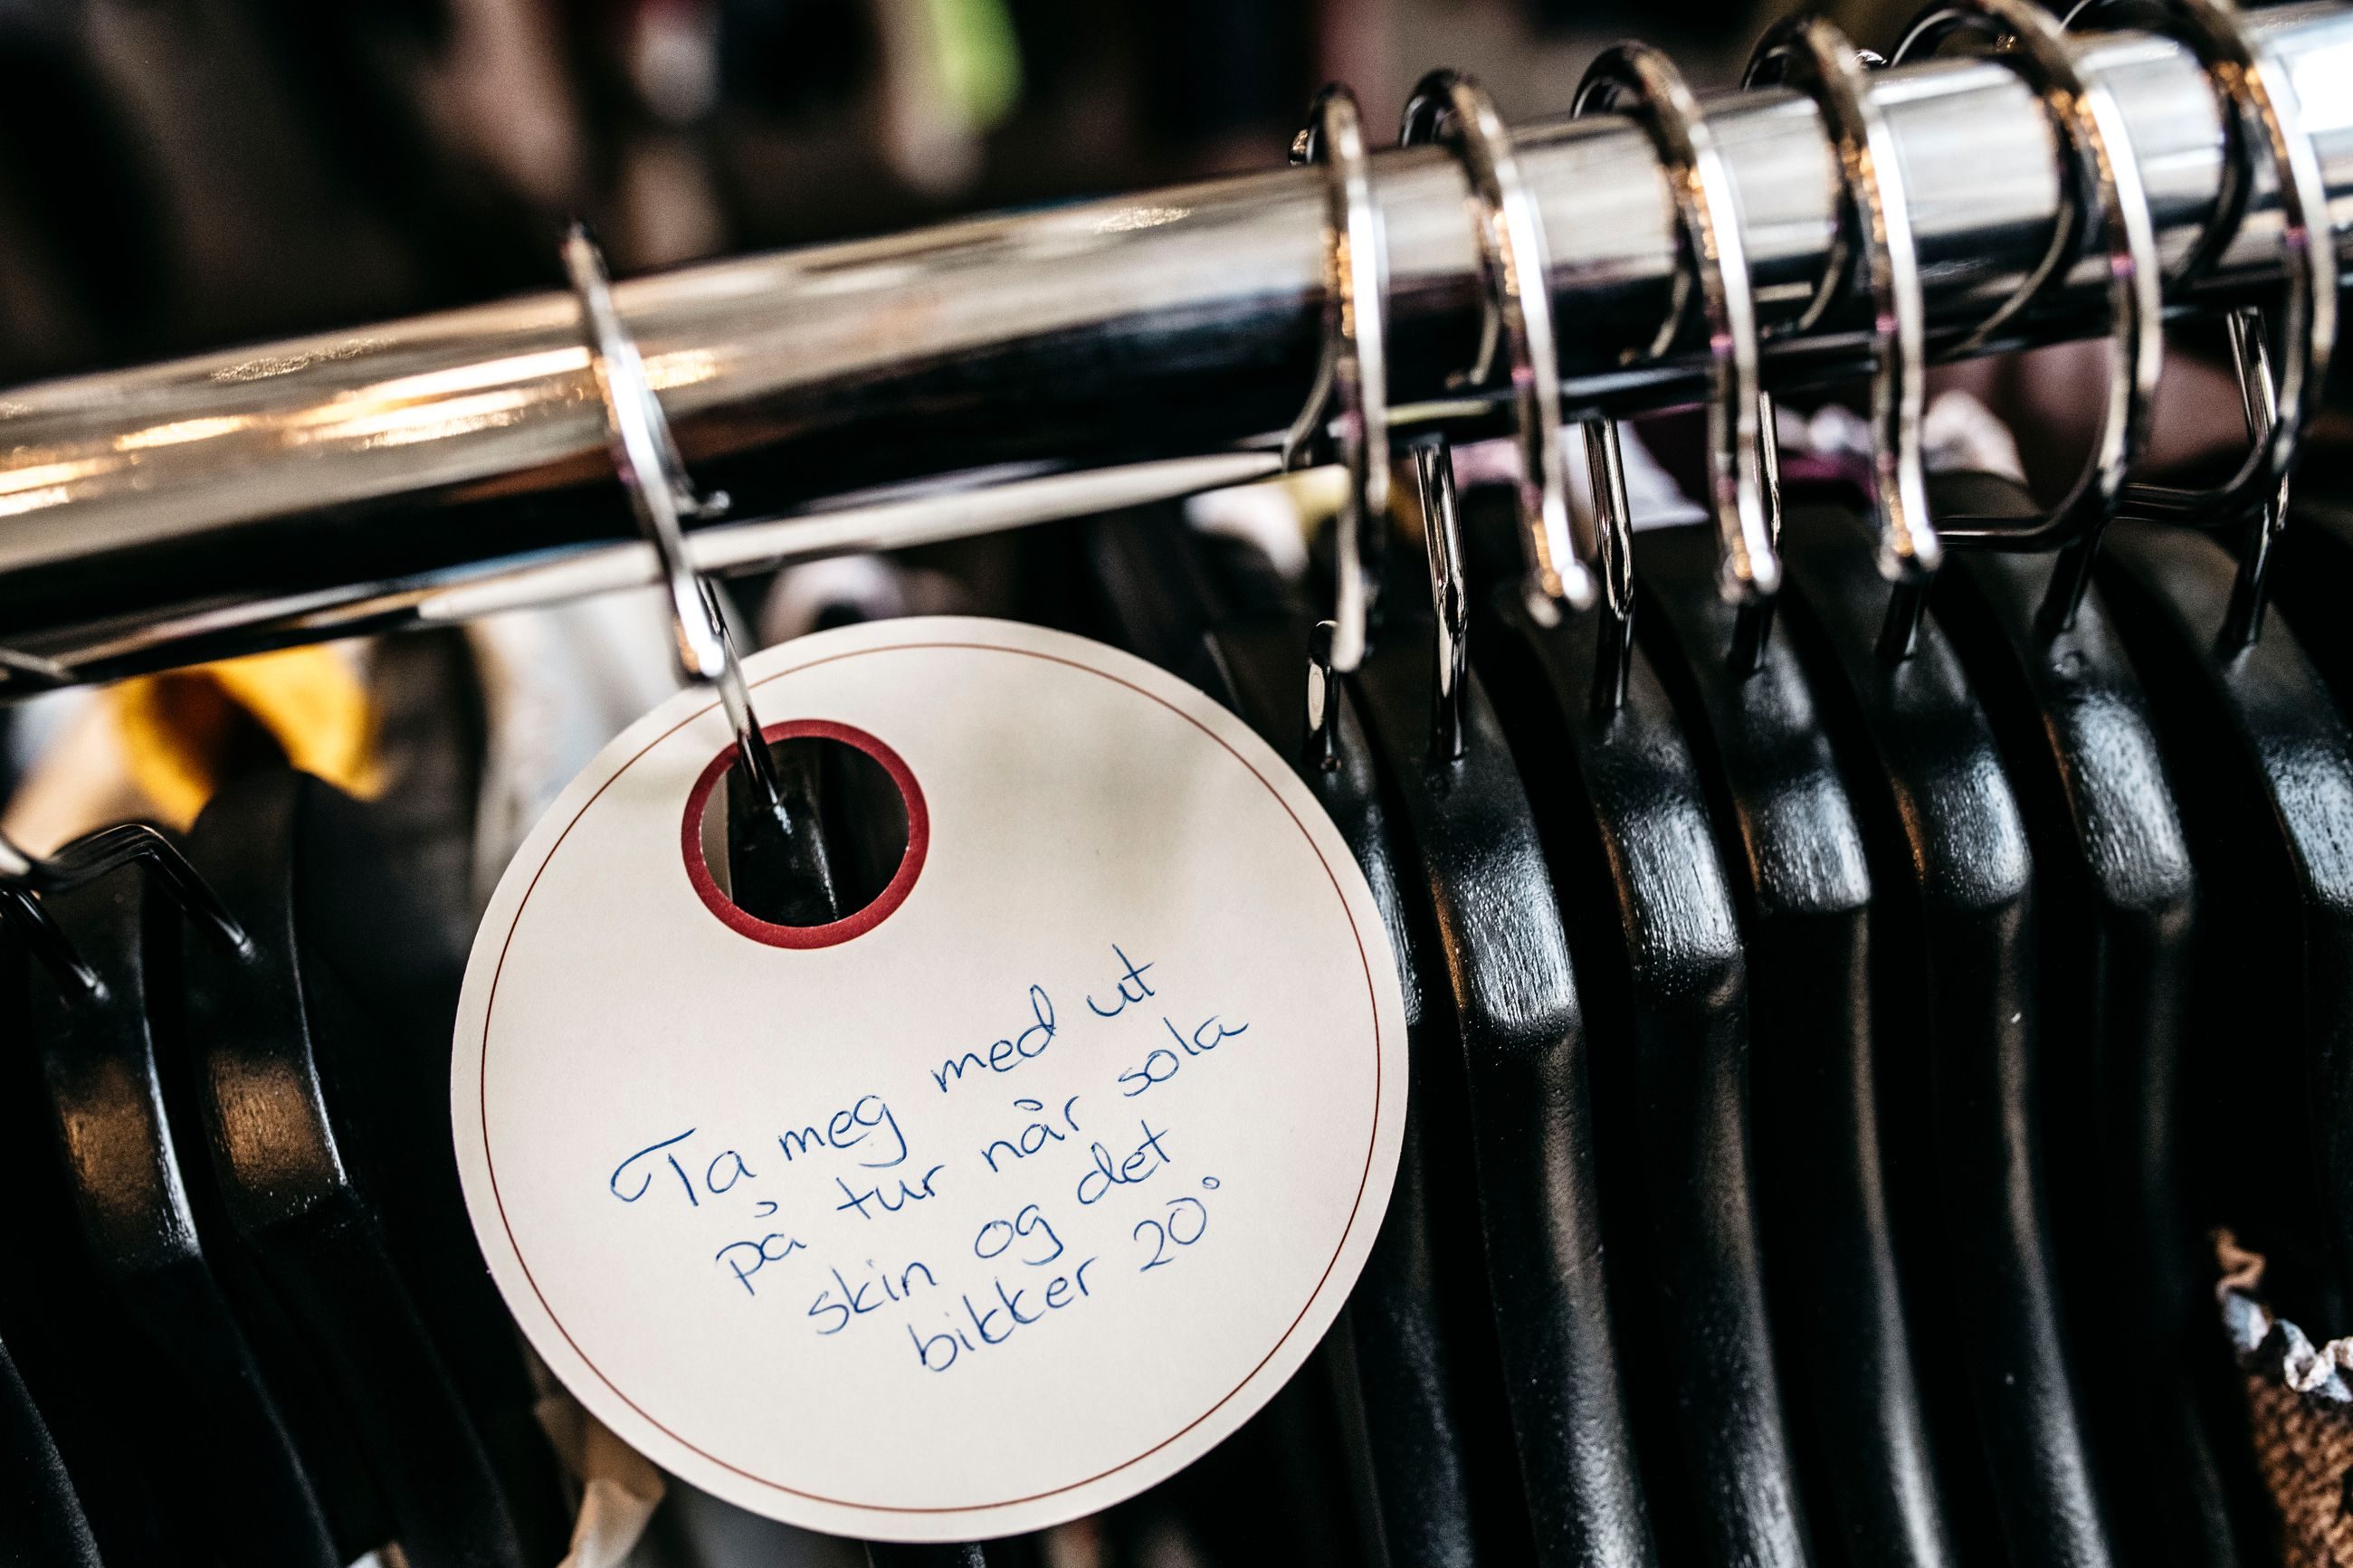 Ta meg med ut
på tur når sola
skin og det
bikker 20°